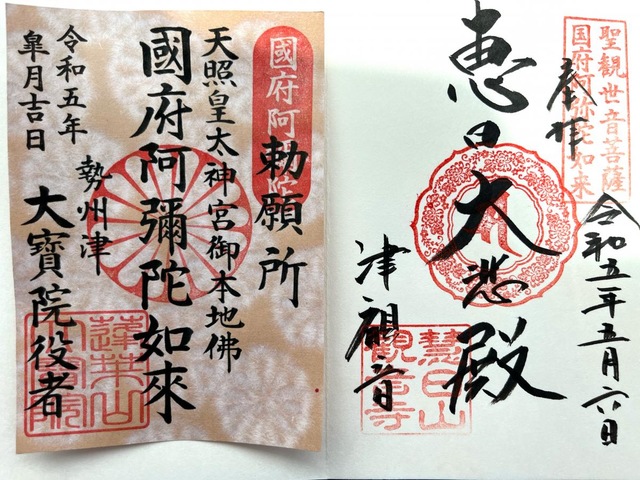 聖觀世音菩薩
国府阿弥陀如来
奉拝
令和五年五月六日
恵日大悲殿
津観音
慧日山
觀音寺
國府阿
勅願所
天照皇太神宮御本地佛
國府阿彌陀如來
勢州津
大寶院役者
令和五年
皐月吉日
蓮華山